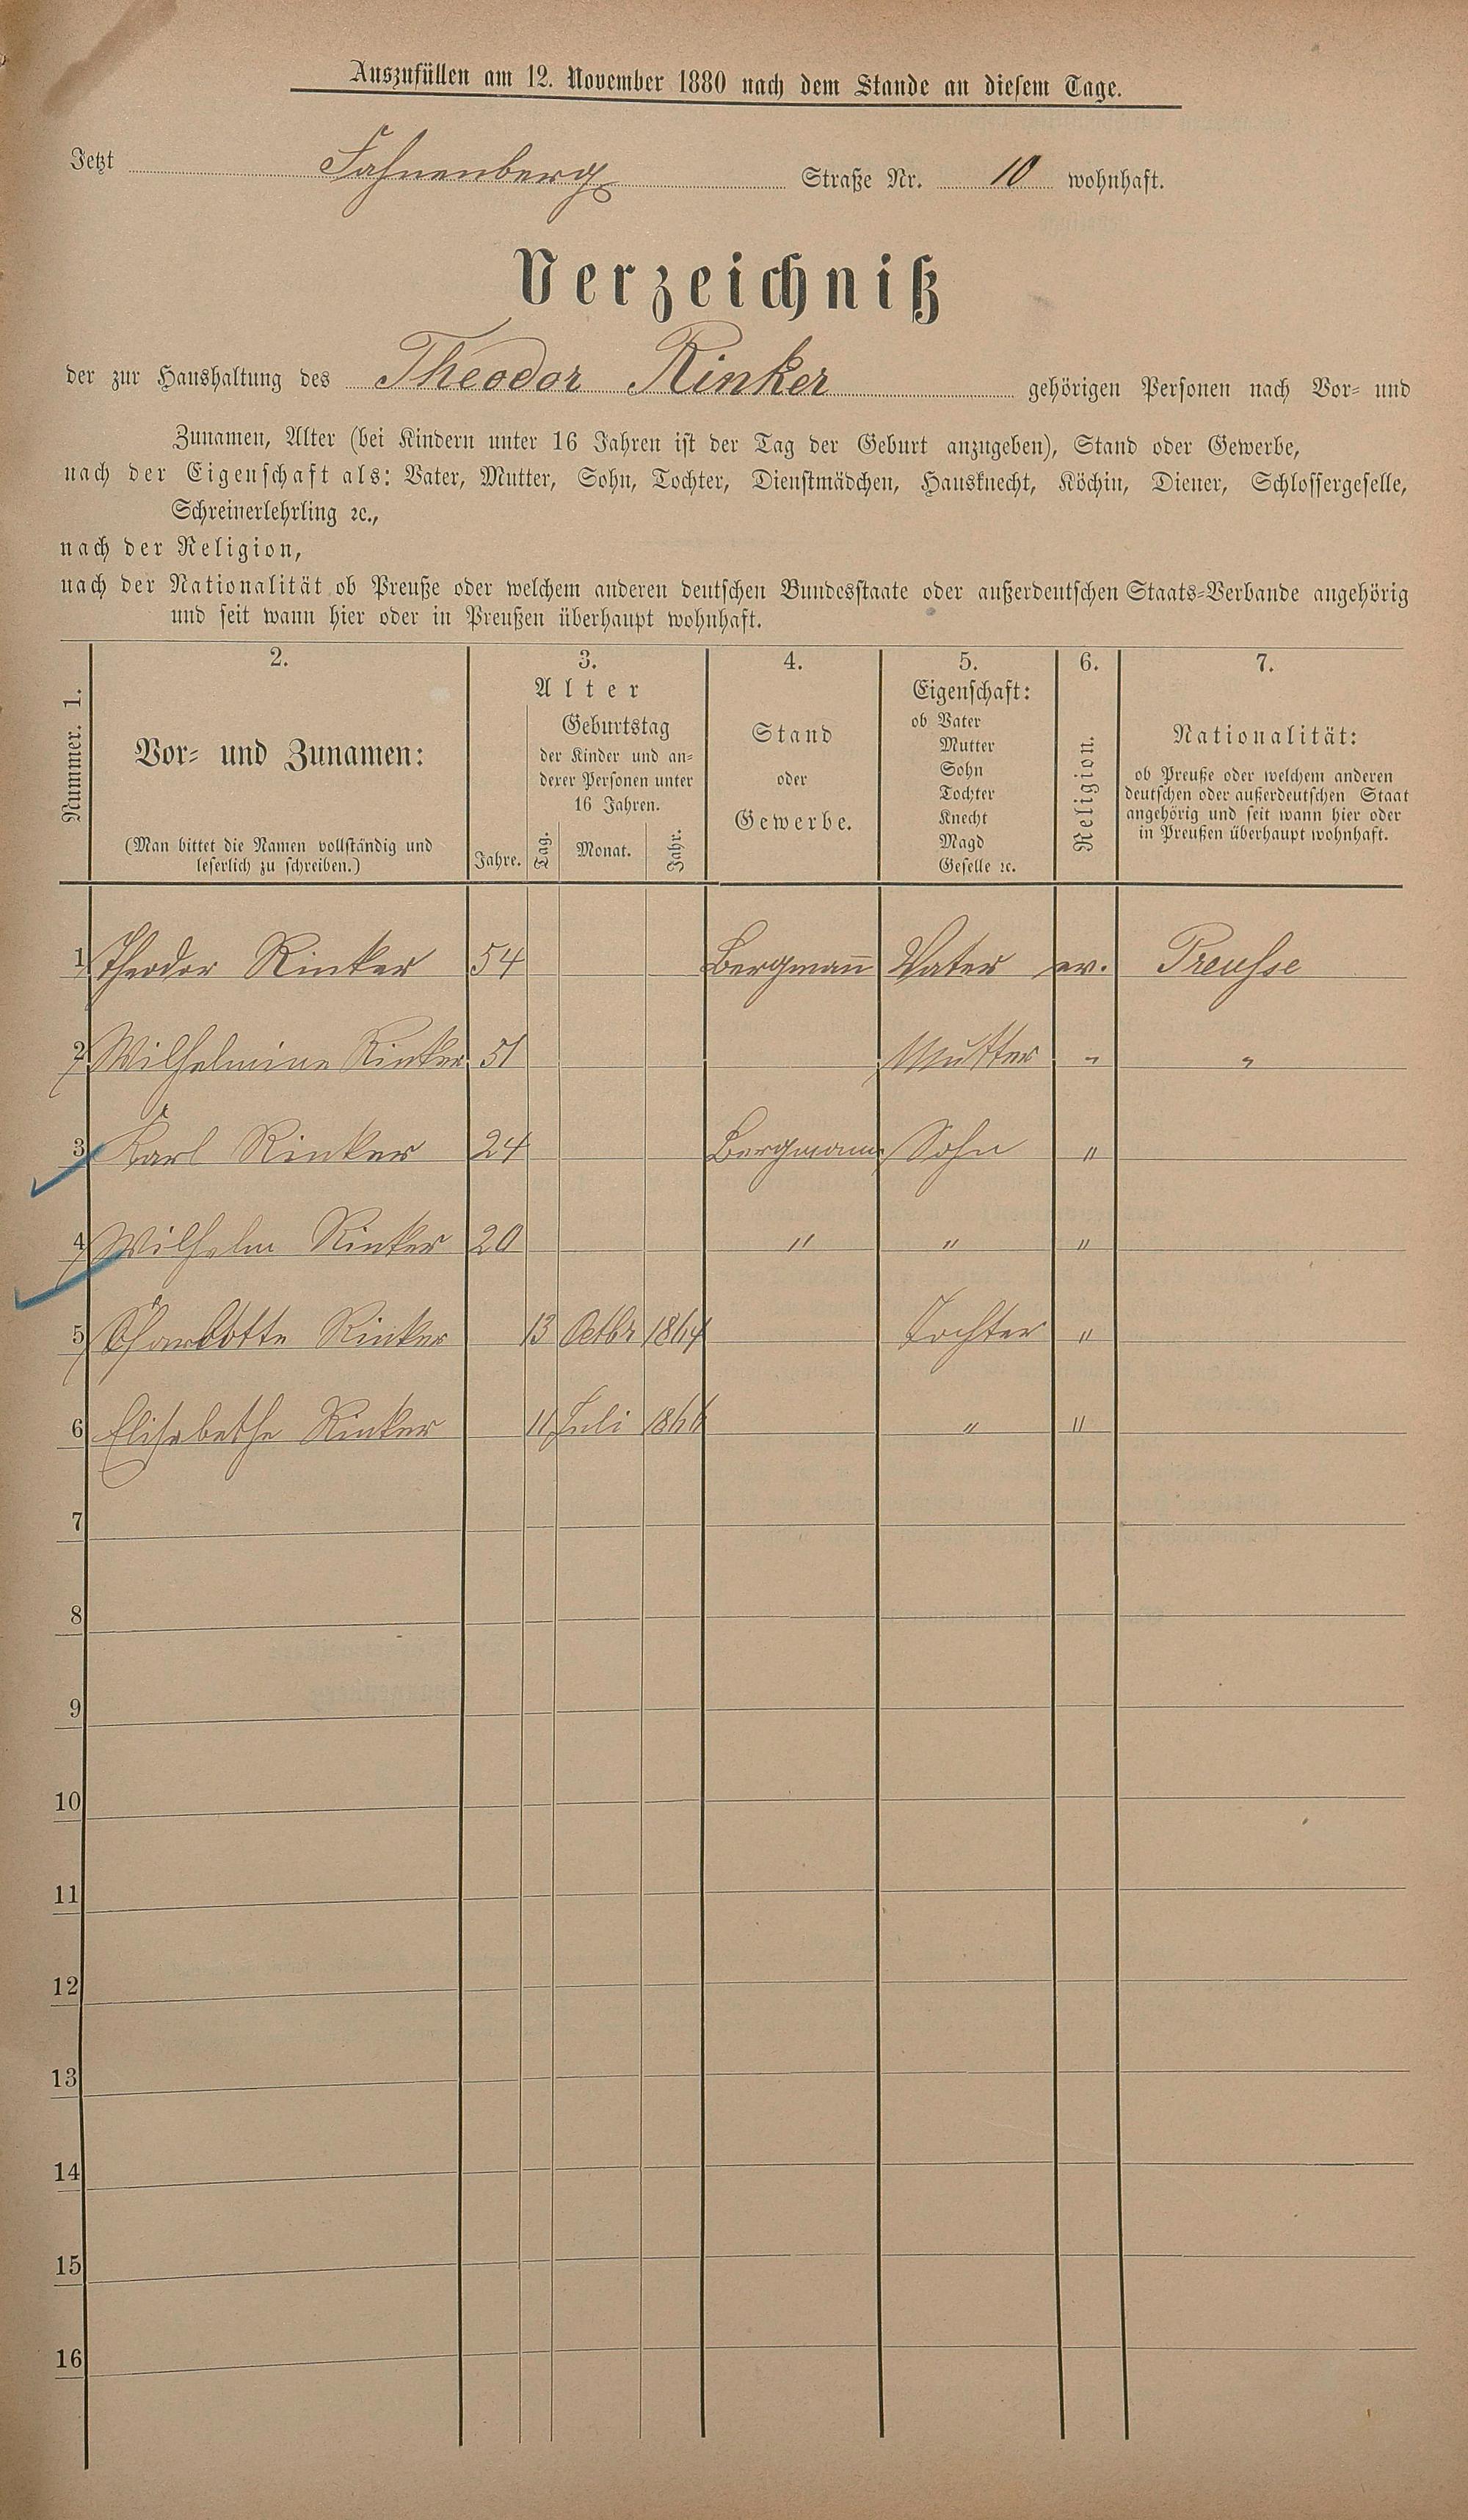 Auszufüllen am 12. November 1880 nach dem Stande an diesem Tage.
Jetzt Fahnenberg Straße Nr. 10 wohnhaft.
Verzeichniß
der zur Haushaltung des Theodor Rinker gehörigen Personen nach Vor- und
Zunamen, Alter (bei Kindern unter 16 Jahren ist der Tag der Geburt anzugeben), Stand oder Gewerbe,
nach der Eigenschaft als: Vater, Mutter, Sohn, Tochter, Dienstmädchen, Hausknecht, Köchin, Diener, Schlossergeselle,
Schreinerlehrling ꝛc.,
nach der Religion,
nach der Nationalität ob Preuße oder welchem anderen deutschen Bundesstaate oder außerdeutschen Staats-Verbande angehörig
und seit wann hier oder in Preußen überhaupt wohnhaft.
Nummer. 1.
2.
Vor- und Zunamen:
(Man bittet die Namen vollständig und
leserlich zu schreiben.)
3.
Alter
Jahre.
Geburtstag
der Kinder und an-
derer Personen unter
16 Jahren.
Tag. Monat. Jahr.
4.
Stand
oder
Gewerbe.
5.
Eigenschaft:
ob Vater
Mutter
Sohn
Tochter
Knecht
Magd
Geselle ꝛc.
6.
Religion.
7.
Nationalität:
ob Preuße oder welchem anderen
deutschen oder außerdeutschen Staat
angehörig und seit wann hier oder
in Preußen überhaupt wohnhaft.
1 Theodor Rinker 54 Bergmann̄ Vater ev. Preusse
2 Wilhelmine Rinker 51 Mutter " "
3 Karl Rinker 24 Bergmann Sohn "
4 Wilhelm Rinker 20 " " "
5 Charlotte Rinker 13 Octbr 1864 Tochter "
6 Elisabethe Rinker 11 Juli 1866 " "
7
8
9
10
11
12
13
14
15
16